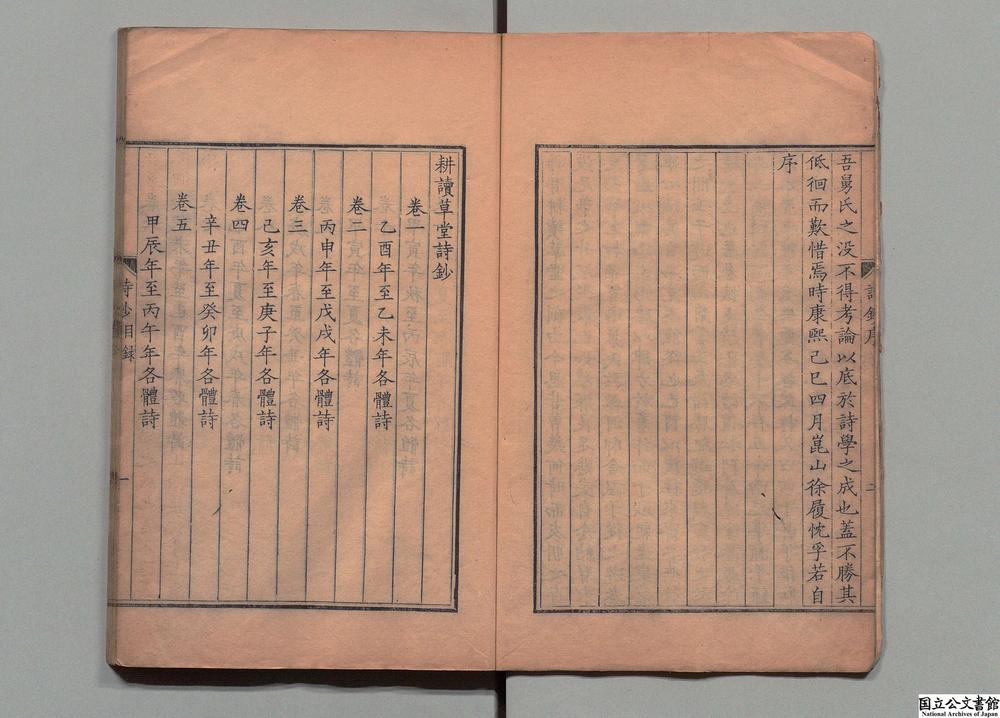 吾舅氏之没不得考論以底於詩學之成也蓋不勝其
低徊而歎惜焉時康熙己巳四月崑山徐履忱孚若自
序
詩鈔序
二
耕讀草堂詩鈔
卷一
乙酉年至乙未年各體詩
卷二
丙申年至戊戌年各體詩
卷三
己亥年至庚子年各體詩
卷四
辛丑年至癸卯年各體詩
卷五
甲辰年至丙午年各體詩
詩鈔目録
一
国立公文書館
National Archives of Japan